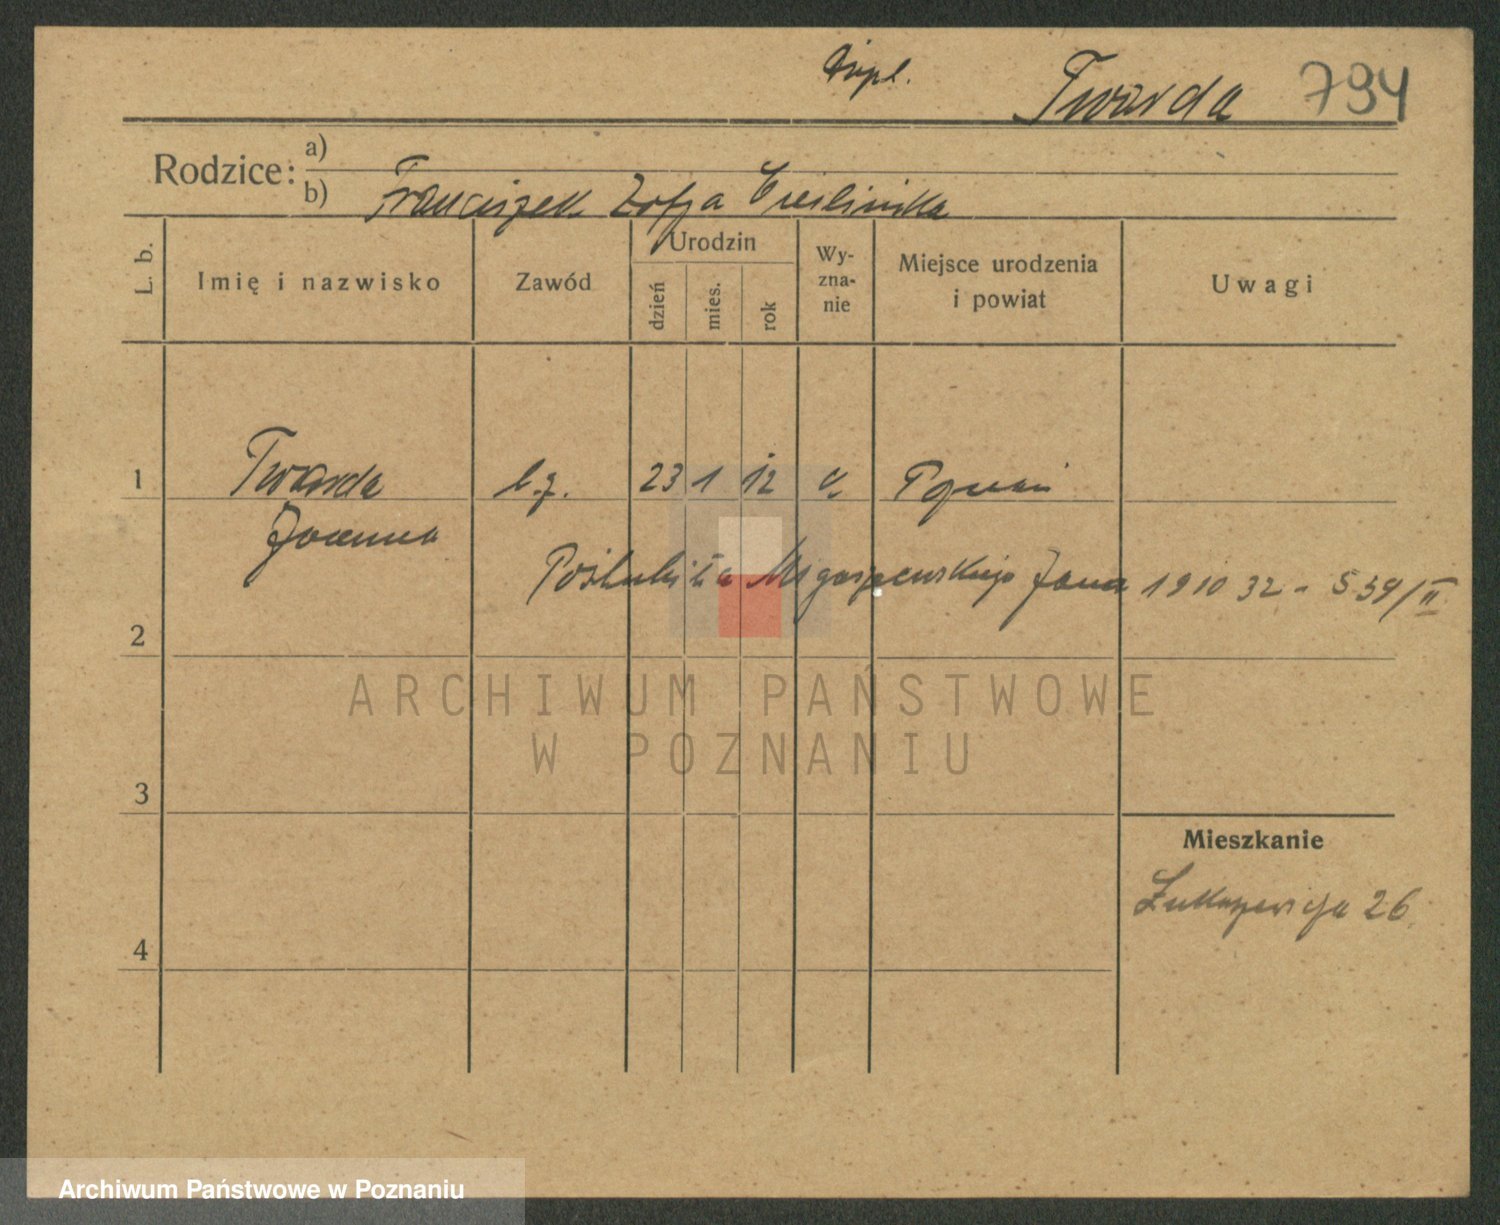 dupl. Twarda 794
Rodzice: a)
b) Franciszek Zofja Cieślińska
L. b. Imię i nazwisko Zawód Urodzin dzień mies. rok Wy-zna-nie Miejsce urodzenia i powiat Uwagi
1 Twarda b.z. 23 1 12 k
Joanna
Poślubiła Jana 1910 32 - 539/II
2
ARCHIWUM PAŃSTWOWE
W POZNANIU
3
Mieszkanie
Łukaszewicza 26
4
Archiwum Państwowe w Poznaniu